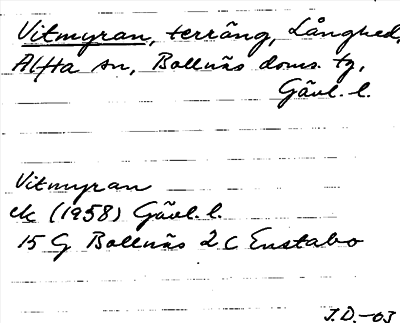 Vitmyran, terräng, Långhed,
Alfta sn, Bollnäs doms. tg,
Gävl. l.
Vitmyran
ek (1958) Gävl. l.
15 G Bollnäs 2 c Enstabo
J.D.-03